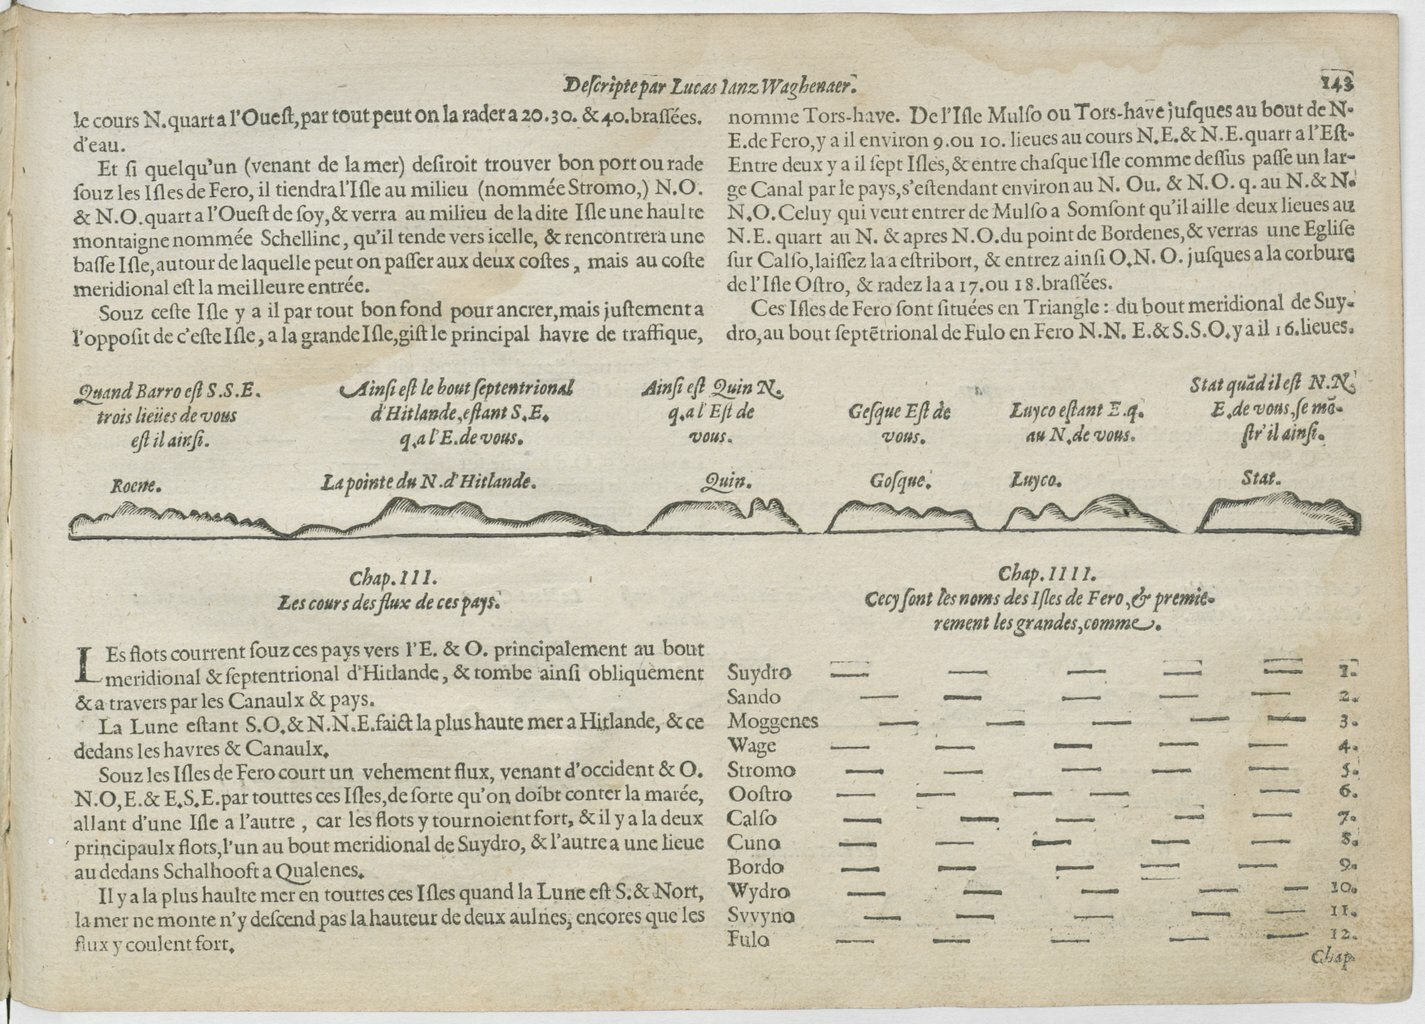 Descripte par Lucas Ianz Waghenaer.
143
le cours N. quart a l'Ouest, par tout peut on la rader a 20. 30. & 40. brassées.
d'eau.
Et si quelqu'un (venant de la mer) desiroit trouver bon port ou rade
souz les Isles de Fero, il tiendra l'Isle au milieu (nommée Stromo,) N. O.
& N. O. quart a l'Ouest de soy, & verra au milieu de la dite Isle une haulte
montaigne nommée Schellinc, qu'il tende vers icelle, & rencontrera une
basse Isle, autour de laquelle peut on passer aux deux costes, mais au coste
meridional est la meilleure entrée.
Souz ceste Isle y a il par tout bon fond pour ancrer, mais justement a
l'opposit de c'este Isle, a la grande Isle, gist le principal havre de traffique,
nomme Tors-have. De l'Isle Mulso ou Tors-have jusques au bout de N.
E. de Fero, y a il environ 9. ou 10. lieues au cours N. E. & N. E. quart a l'Est.
Entre deux y a il sept Isles, & entre chasque Isle comme dessus passe un lar-
ge Canal par le pays, s'estendant environ au N. Ou. & N. O. q. au N. & N.
N. O. Celuy qui veut entrer de Mulso a Somsont qu'il aille deux lieues au
N. E. quart au N. & apres N. O. du point de Bordenes, & verras une Eglise
sur Calso, laissez la a estribort, & entrez ainsi O. N. O. jusques a la corbure
de l'Isle Ostro, & radez la a 17. ou 18. brassées.
Ces Isles de Fero sont situées en Triangle : du bout meridional de Suy-
dro, au bout septētrional de Fulo en Fero N. N. E. & S. S. O. y a il 16. lieues.
Quand Barro est S. S. E.
trois lieües de vous
est il ainsi.
Ainsi est le bout septentrional
d'Hitlande, estant S. E.
q. a l'E. de vous.
Ainsi est Quin N.
q. a l'Est de
vous.
Gesque Est de
vous.
Luyco estant E. q.
au N. de vous.
Stat quād il est N. N.
E. de vous, se mō-
str' il ainsi.
Roene.
La pointe du N. d'Hitlande.
Quin.
Gosque.
Luyco.
Stat.
Chap. III.
Les cours des flux de ces pays.
LEs flots courrent souz ces pays vers l'E. & O. principalement au bout
meridional & septentrional d'Hitlande, & tombe ainsi obliquement
& a travers par les Canaulx & pays.
La Lune estant S. O. & N. N. E. faict la plus haute mer a Hitlande, & ce
dedans les havres & Canaulx.
Souz les Isles de Fero court un vehement flux, venant d'occident & O.
N. O, E. & E. S. E. par touttes ces Isles, de sorte qu'on doibt conter la marée,
allant d'une Isle a l'autre, car les flots y tournoient fort, & il y a la deux
principaulx flots, l'un au bout meridional de Suydro, & l'autre a une lieue
au dedans Schalhooft a Qualenes.
Il y a la plus haulte mer en touttes ces Isles quand la Lune est S. & Nort,
la mer ne monte n'y descend pas la hauteur de deux aulnes, encores que les
flux y coulent fort.
Chap. IIII.
Cecy sont les noms des Isles de Fero, & premie-
rement les grandes, comme.
Suydro 1.
Sando 2.
Moggenes 3.
Wage 4.
Stromo 5.
Oostro 6.
Calso 7.
Cuno 8.
Bordo 9.
Wydro 10.
Svvyno 11.
Fulo 12.
Chap.